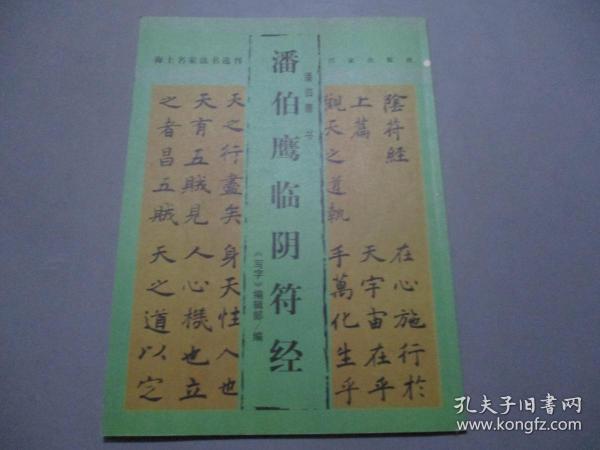 海上名家法书选刊
百家出版社
潘伯鹰 书
潘伯鹰临阴符经
《写字》编辑部/编
陰符經
上篇
觀天之道執
天之行盡矣
天有五賊見
之者昌五賊
在心施行於
天宇宙在乎
手萬化生乎
身天性人也
人心機也立
天之道以定
孔夫子旧书网
www.kongfz.com